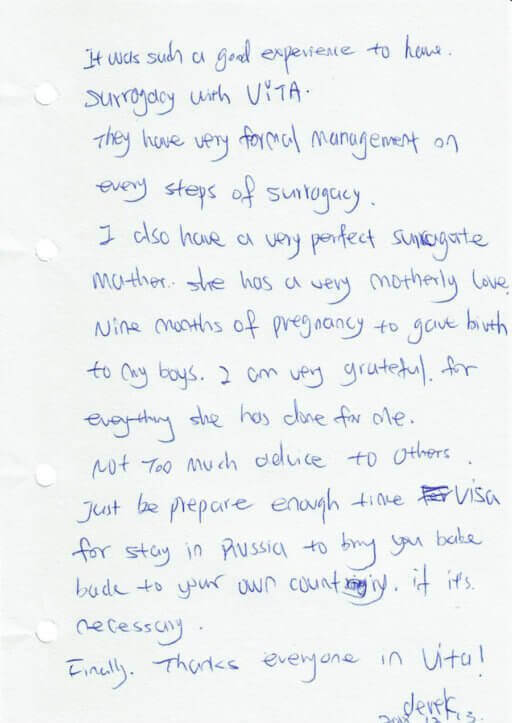 It was such a good experience to have.
surrogacy with ViTA.
They have very formal management on
every steps of surrogacy.
I also have a very perfect surrogate
mather. she has a very motherly love.
Nine months of pregnancy to gave birth
to my boys. I am very grateful. for
everything she has done for me.
Not Too much advice to others.
Just be prepare enough time Visa
for stay in Russia to bring you babe
back to your own country. if it's
necessary.
Finally. Thanks everyone in Vita!
derek